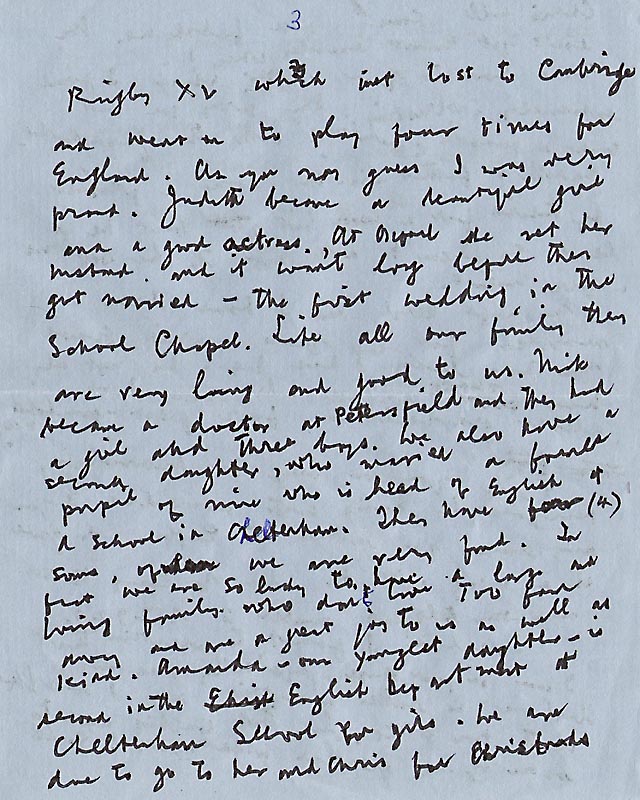 3
Rugby XV which just lost to Cambridge
and went on to play four times for
England. As you may guess I was very
proud. Judith became a beautiful girl
and a good actress. At she met her
husband and it wasn't long before they
got married – the first wedding in the
School Chapel. Like all our family they
are very loving and good to us. Nick
became a doctor at Petersfield and they had
a girl and three boys. We also have a
second daughter, who married a former
pupil of mine who is head of English at
a school in Cheltenham. They have four (4)
sons, of whom we are very fond. In
fact we are so lucky to have a large and
loving family who don't live too far
away and are a great joy to us as well as
kind. Amanda – our youngest daughter – is
second in the English Department at
Cheltenham School for girls. We are
due to go to her and Chris for Christmas